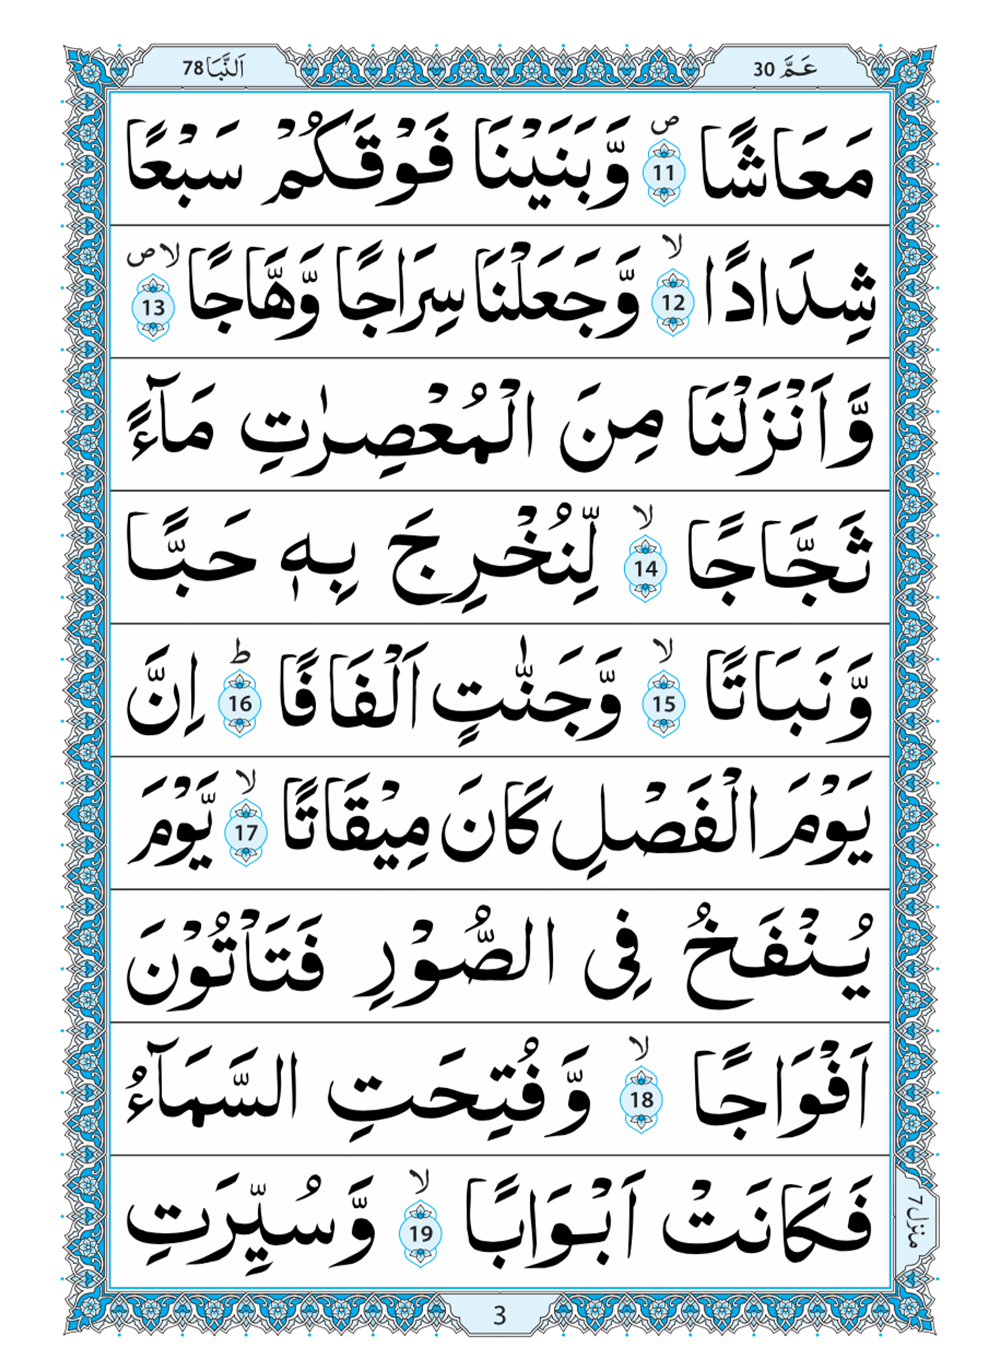 عَمَّ 30
اَلنَّبَا 78
مَعَاشًا ۪ۙ 11 وَّبَنَيْنَا فَوْقَكُمْ سَبْعًا
شِدَادًا ۙ 12 وَّجَعَلْنَا سِرَاجًا وَّهَّاجًا ۙ ص 13
وَّاَنْزَلْنَا مِنَ الْمُعْصِرٰتِ مَآءً
ثَجَّاجًا ۙ 14 لِّنُخْرِجَ بِهٖ حَبًّا
وَّنَبَاتًا ۙ 15 وَّجَنّٰتٍ اَلْفَافًا ؕ 16 اِنَّ
يَوْمَ الْفَصْلِ كَانَ مِيْقَاتًا ۙ 17 يَّوْمَ
يُنْفَخُ فِى الصُّوْرِ فَتَاْتُوْنَ
اَفْوَاجًا ۙ 18 وَّفُتِحَتِ السَّمَآءُ
فَكَانَتْ اَبْوَابًا ۙ 19 وَّسُيِّرَتِ
منزل 7
3